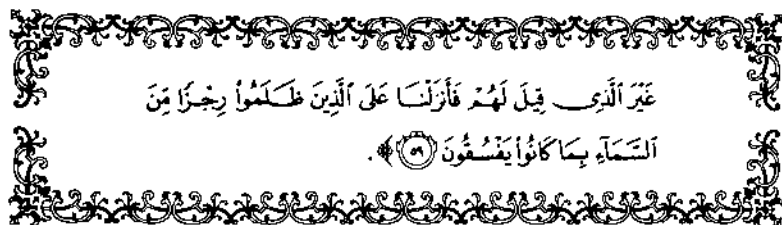 غَيْرَ ٱلَّذِى قِيلَ لَهُمْ فَأَنزَلْنَا عَلَى ٱلَّذِينَ ظَلَمُوا۟ رِجْزًا مِّنَ
ٱلسَّمَآءِ بِمَا كَانُوا۟ يَفْسُقُونَ ﴿٥٩﴾ ﴾.